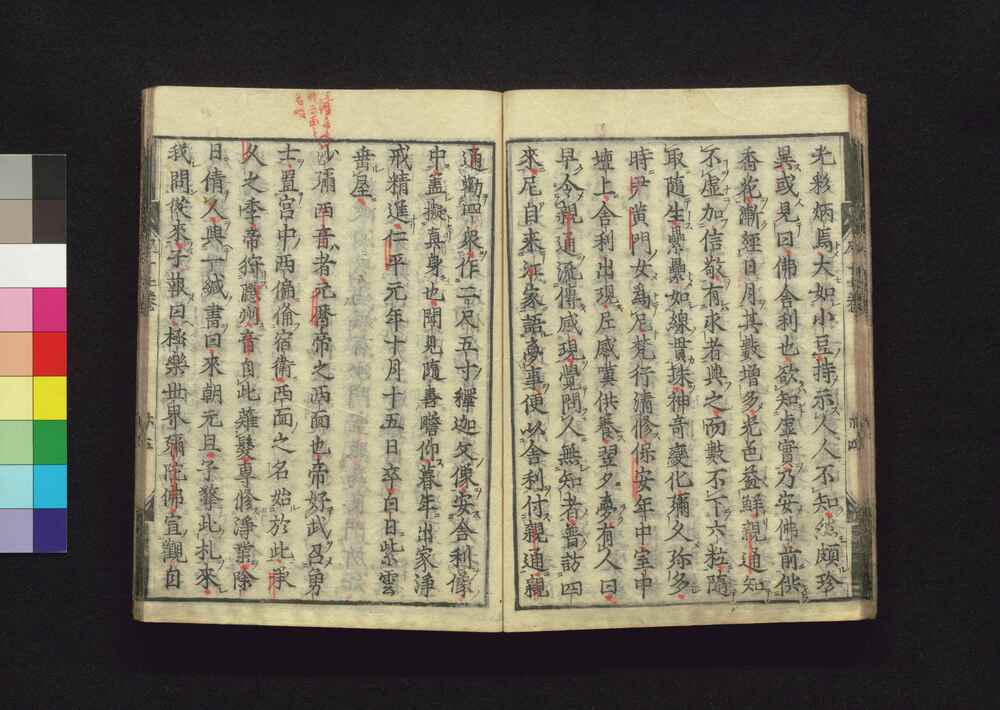 光彩炳焉大如小豆持示人人不知然頗珍
異或見曰佛舍利也欲知虛實乃安佛前供
香花漸經日月其數增多光色益鮮親通知
不虛加信敬有求者與之而數不下六粒隨
取隨生纍纍如線貫珠神奇變化彌久弥多
時尹黃門女爲尼梵行清修保安年中室中
壇上舍利出現尼感嘆供養翌夕夢有人曰
早令親通流傳感現覺問人無知者普訪四
來尼自來江家語夢事便以舍利付親通親
通勸四衆作二尺五寸釋迦文像安舍利像
中盖擬真身也聞見隨喜瞻仰暮年出家淨
戒精進仁平元年十月十五日卒白日紫雲
垂屋
沙彌西音者元曆帝之西面也帝好武召勇
士置宮中西偏倫宿衛西面之名始於此承
久之季帝狩音自此薙髮專修淨業除
日倩人與一緘書曰來朝元旦子擎此札來
我問從來子報曰極樂世界彌陀佛宣觀自